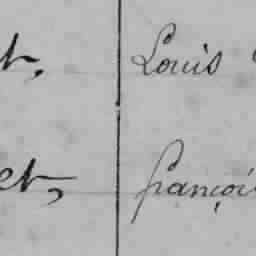 t, Louis
et, françois